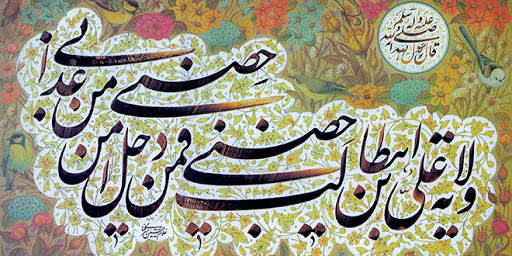 قال رسول الله صلی الله علیه و آله و سلم
ولایة علی بن ابیطالب حصنی فمن دخل حصنی امن من عذابی